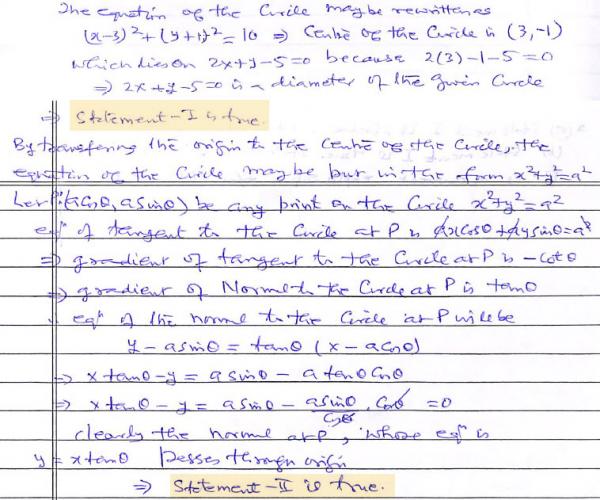 The equation of the Circle may be rewritten as
(x-3)² + (y+1)² = 10 ⇒ Centre of the Circle is (3,-1)
which lies on 2x+y-5=0 because 2(3)-1-5=0
⇒ 2x+y-5=0 is a diameter of the given Circle
⇒ Statement-I is true.
By transferring the origin to the Centre of the Circle, the
equation of the Circle may be put in the form x²+y²=a²
Let P(acosθ, asinθ) be any point on the Circle x²+y²=a²
eqⁿ of tangent to the Circle at P is axcosθ+aysinθ=a²
⇒ gradient of tangent to the Circle at P is -cotθ
⇒ gradient of Normal to the Circle at P is tanθ
eqⁿ of the normal to the Circle at P will be
y-asinθ = tanθ (x-acosθ)
⇒ xtanθ-y = asinθ - atanθcosθ
⇒ xtanθ-y = asinθ - asinθ/cosθ . cosθ = 0
clearly the normal at P, whose eqⁿ is
y = xtanθ Passes through origin
⇒ Statement-II is true.